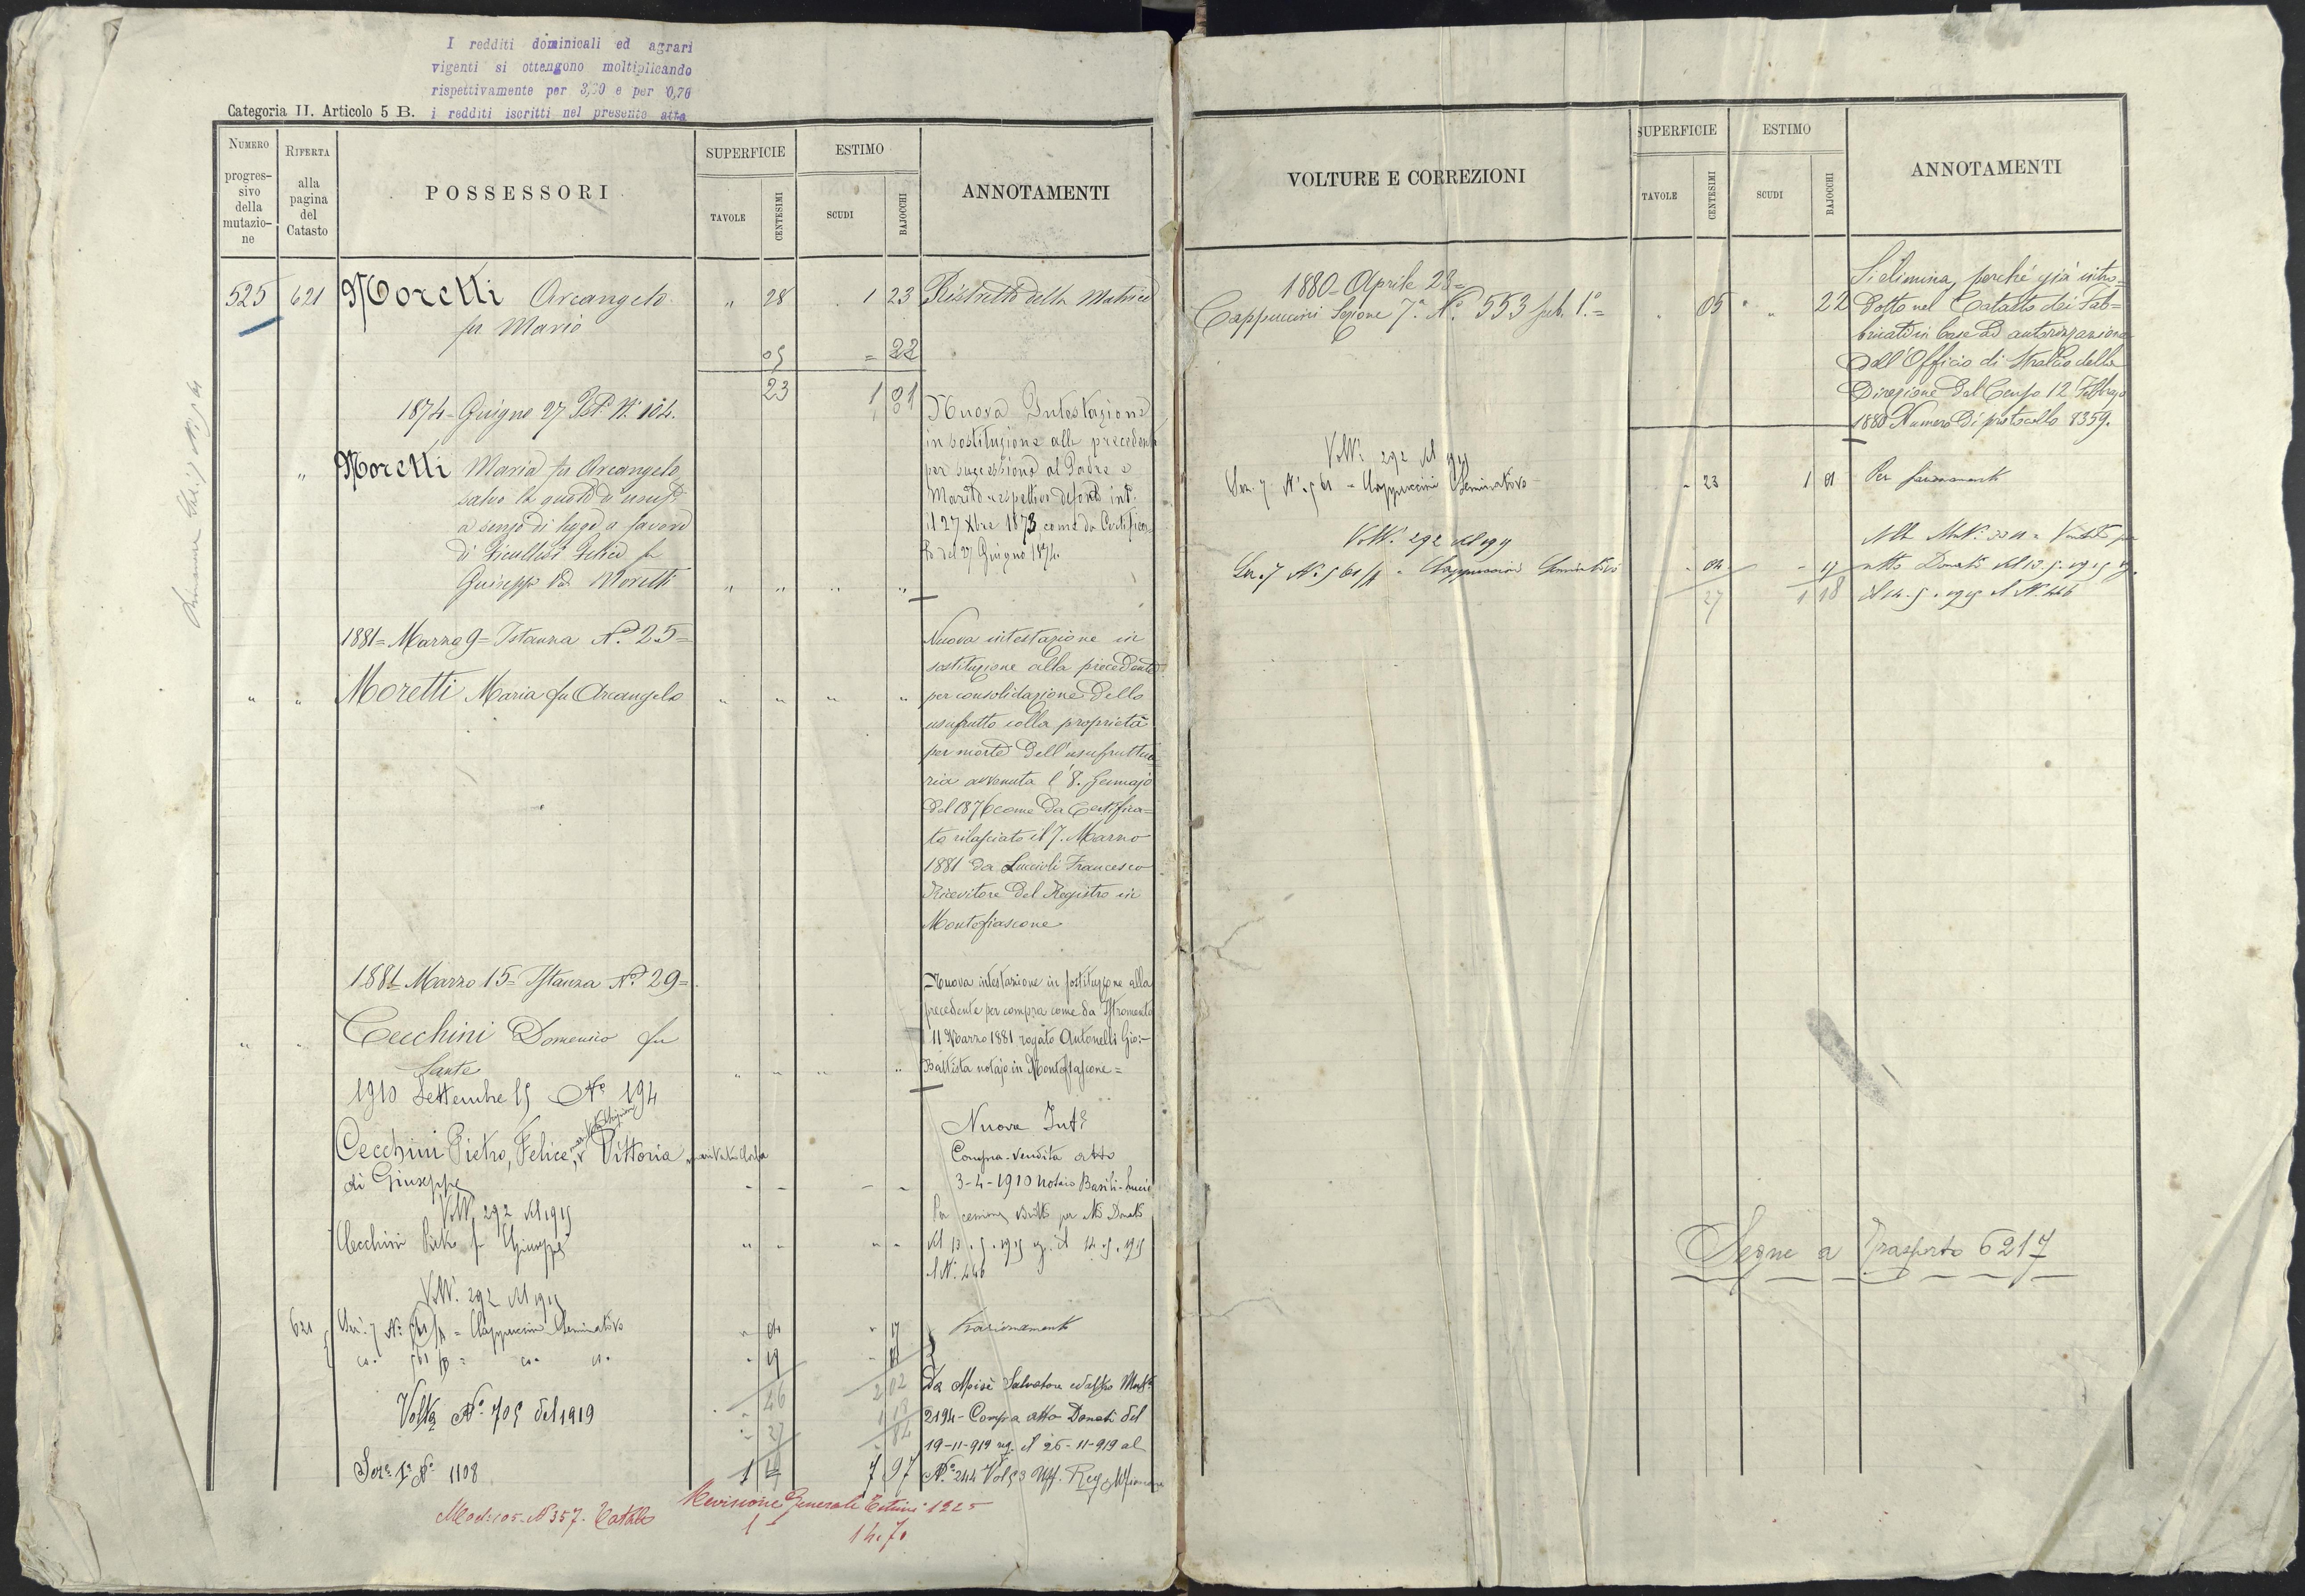 I redditi dominicali ed agrari
vigenti si ottengono moltiplicando
rispettivamente per 3,20 e per 0,70
i redditi iscritti nel presente atto
Categoria II. Articolo 5 B.
NUMERO progressivo della mutazione
RIFERTA alla pagina del Catasto
POSSESSORI
SUPERFICIE
TAVOLE
CENTESIMI
ESTIMO
SCUDI
BAJOCCHI
ANNOTAMENTI
525 621 Moretti Arcangelo " 28 1 23 Ristretto della Matrice
fu Mario
05 = 22
23 1 01
1874 - Giugno 27 Ist. N. 104.
Nuova Intestazione
in sostituzione alla precedente
per successione al Padre e
Marito rispettivo defonto int.
il 27 Xbre 1873 come da Certifica-
to del 27 Giugno 1874.
" Moretti Maria fu Arcangelo
salvo la quota di usuf.
a senso di legge a favore
di Felice fu
Giuseppe Ved. Moretti " " " "
1881 = Marzo 9 = Istanza N.º 25 =
" " Moretti Maria fu Arcangelo " " " "
Nuova intestazione in
sostituzione alla precedente
per consolidazione dello
usufrutto colla proprietà
per morte dell'usufruttua-
ria avvenuta l'8. Gennajo
del 1876 come da Certifica=
to rilasciato il 7. Marzo
1881 da Luccioli Francesco
Ricevitore del Registro in
Montefiascone
1881 Marzo 15 = Istanza N.º 29 =
" " Cecchini Domenico fu
Sante " " " "
Nuova intestazione in sostituzione alla
precedente per compra come da Istromento
11 Marzo 1881 rogato Antonelli Gio:-
Battista notajo in Montefiascone =
1910 Settembre 15 Nº 194
Cecchini Pietro, Felice, Vittoria
di Giuseppe - - - -
Nuova Int.e
Compra-vendita atto
3-4-1910 notaio Basili-Lucio
Volt. 292 del 1915
Cecchini Pietro fu Giuseppe " - " -
Per cessione diritti per atto Donati
del 13.5.1915 reg. il 14.5.1915
al N. 446
Volt. 292 del 1915
621 Sez. 7 N. 561/A = Cappuccini Seminativo " 04 " 17 Frazionamento
co. 561/B = co. co. " 19
46 2 02
27 1 18
Volt.a N.º 705 del 1919
Sez. 1.a Nº 1108 1 7 97
da Moisè Salvatore ed altro Mut.
2194 - Compra atto Donati del
19-11-919 reg. il 26-11-919 al
N.º 244 Vol 53 Uff. Reg.
Mod: 105. N 357. Catasto
Revisione Generale Estimi 1925
1
14.70
VOLTURE E CORREZIONI
SUPERFICIE
TAVOLE
CENTESIMI
ESTIMO
SCUDI
BAJOCCHI
ANNOTAMENTI
1880 = Aprile 28 =
Cappuccini Sezione 7.a N.º 553 sub. 1.º = . 05 " " 22
Si elimina, perchè già intro=
dotto nel Catasto dei Fab=
bricati in base ad autorizzazione
dall'Officio di Stralcio della
Direzione del Censo 12 Febbrajo
1880 Numero di protocollo 8359.
Volt. 292 del 1915
Sez. 7 N. 561 = Cappuccini Seminativo - 23 1 01 Per frazionamento
Volt. 292 del 1915
Sez. 7 N. 561/A = Cappuccini Seminativo - 04 - 17
27 1 18
atto Donati del 13.5.1915 reg.
il 14.5.1915 al N. 446
Segue a Trasporto 6217